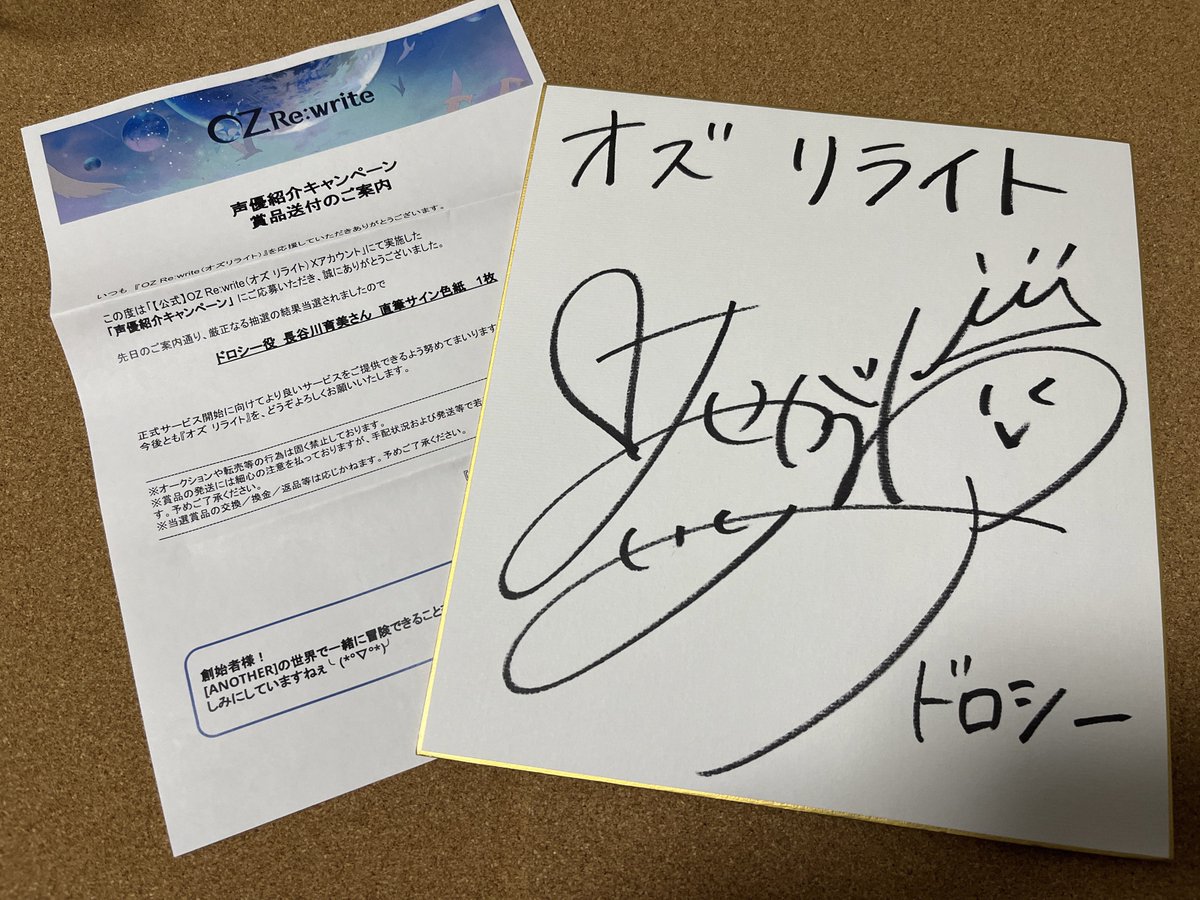 OZ Re:write
声優紹介キャンペーン
賞品送付のご案内
いつも『OZ Re:write（オズリライト）』を応援していただきありがとうございます。
この度は「【公式】OZ Re:write（オズ リライト）Xアカウント」にて実施した
「声優紹介キャンペーン」にご応募いただき、誠にありがとうございました。
先日のご案内通り、厳正なる抽選の結果当選されましたので
ドロシー役 長谷川育美さん 直筆サイン色紙 1枚
正式サービス開始に向けてより良いサービスをご提供できるよう努めてまいります
今後とも『オズ リライト』を、どうぞよろしくお願いいたします。
※オークションや転売等の行為は固く禁止しております。
※賞品の発送には細心の注意を払っておりますが、手配状況および発送等で若
す。予めご了承ください。
※当選賞品の交換／換金／返品等は応じかねます。予めご了承ください。
創始者様！
[ANOTHER]の世界で一緒に冒険できること
しみにしていますねぇ╰(*°▽°*)╯
オズ リライト
はせがわ
いくみ
ドロシー